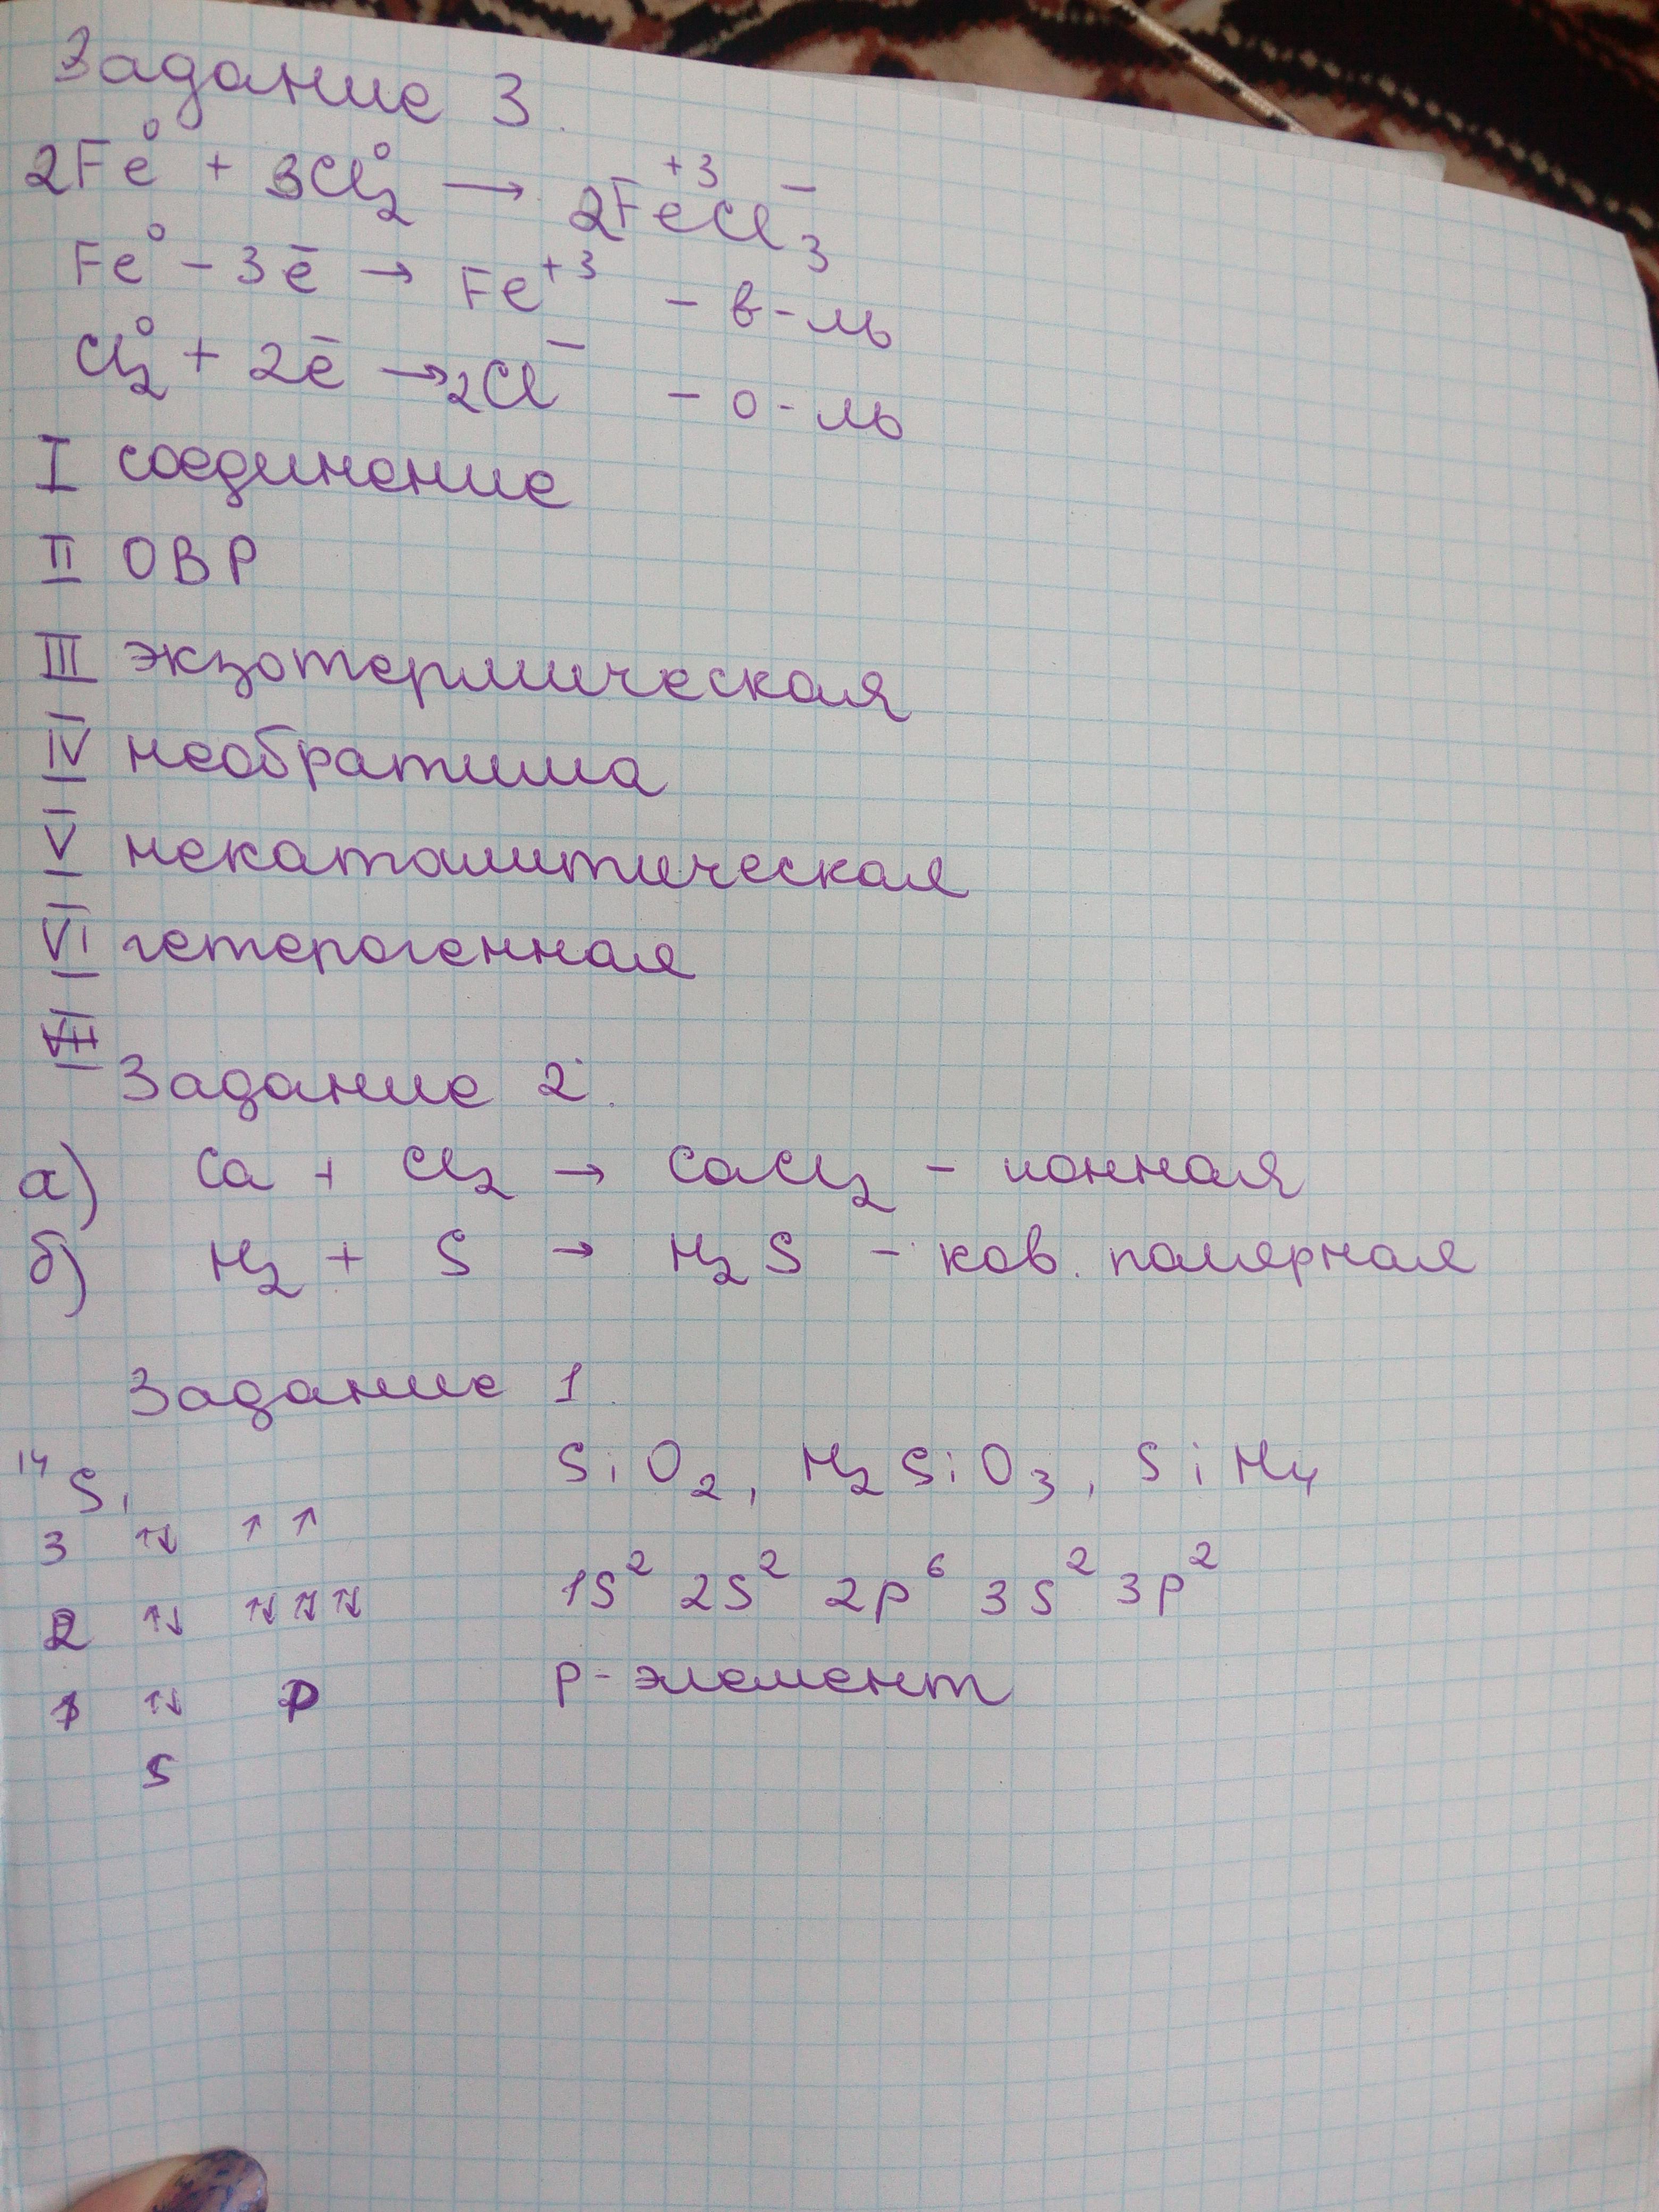 Задание 3.
2Fe⁰ + 3Cl₂⁰ → 2Fe⁺³Cl₃⁻
Fe⁰ - 3ē → Fe⁺³ - в-ль
Cl₂⁰ + 2ē → 2Cl⁻ - о-ль
I соединение
II ОВР
III экзотермическая
IV необратима
V некаталитическая
VI гетерогенная
Задание 2.
а) Ca + Cl₂ → CaCl₂ - ионная
б) H₂ + S → H₂S - ков. полярная
Задание 1.
¹⁴Si SiO₂, H₂SiO₃, SiH₄
3 ↑↓ ↑ ↑
2 ↑↓ ↑↓ ↑↓ ↑↓ 1S² 2S² 2p⁶ 3s² 3p²
1 ↑↓ p p-элемент
s